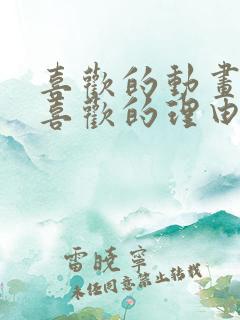 喜歡的動畫
喜歡的理由
雷曉寧
未經同意禁止轉載